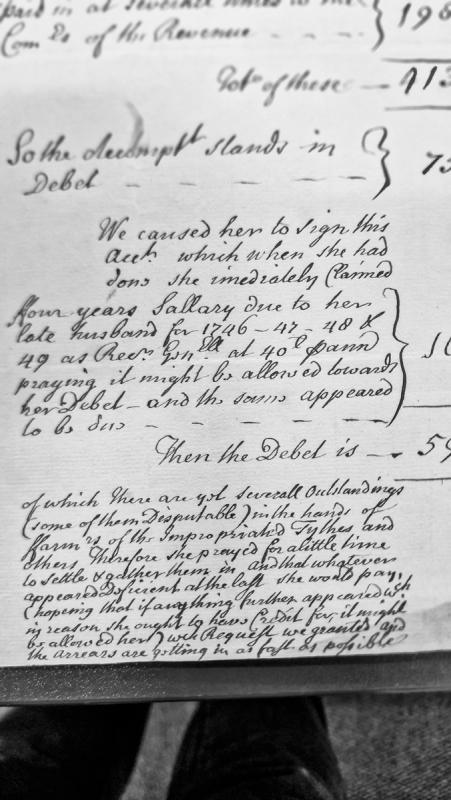 paid in at severall times to the
Com rs of the Revenue - - - 198
Tot n of these — 113
So the Accompt t stands in
Debet - - - - - 75
We caused her to sign this
Acct. which when she had
done she imediately Claimed
ffour years Sallary due to her
late husband for 1746 - 47 - 48 &
49 as Recr. Genll at 40 £ pann
praying it might be allowed towards
her Debet - and the same appeared
to be due - - - - - -
Then the Debet is - - 59
of which there are yet severall Outstandings
(some of them Disputable) in the hands of
ffarm rs of the Impropriated Tythes and
others, Therefore she prayed for a little time
to settle & gather them in, and that whatever
appeared Deficient at the last she would pay,
(hoping that if any thing further appeared wch
in reason she ought to have Credit for, it might
be allowed her) wch Request we granted and
the arrears are getting in as fast as possible